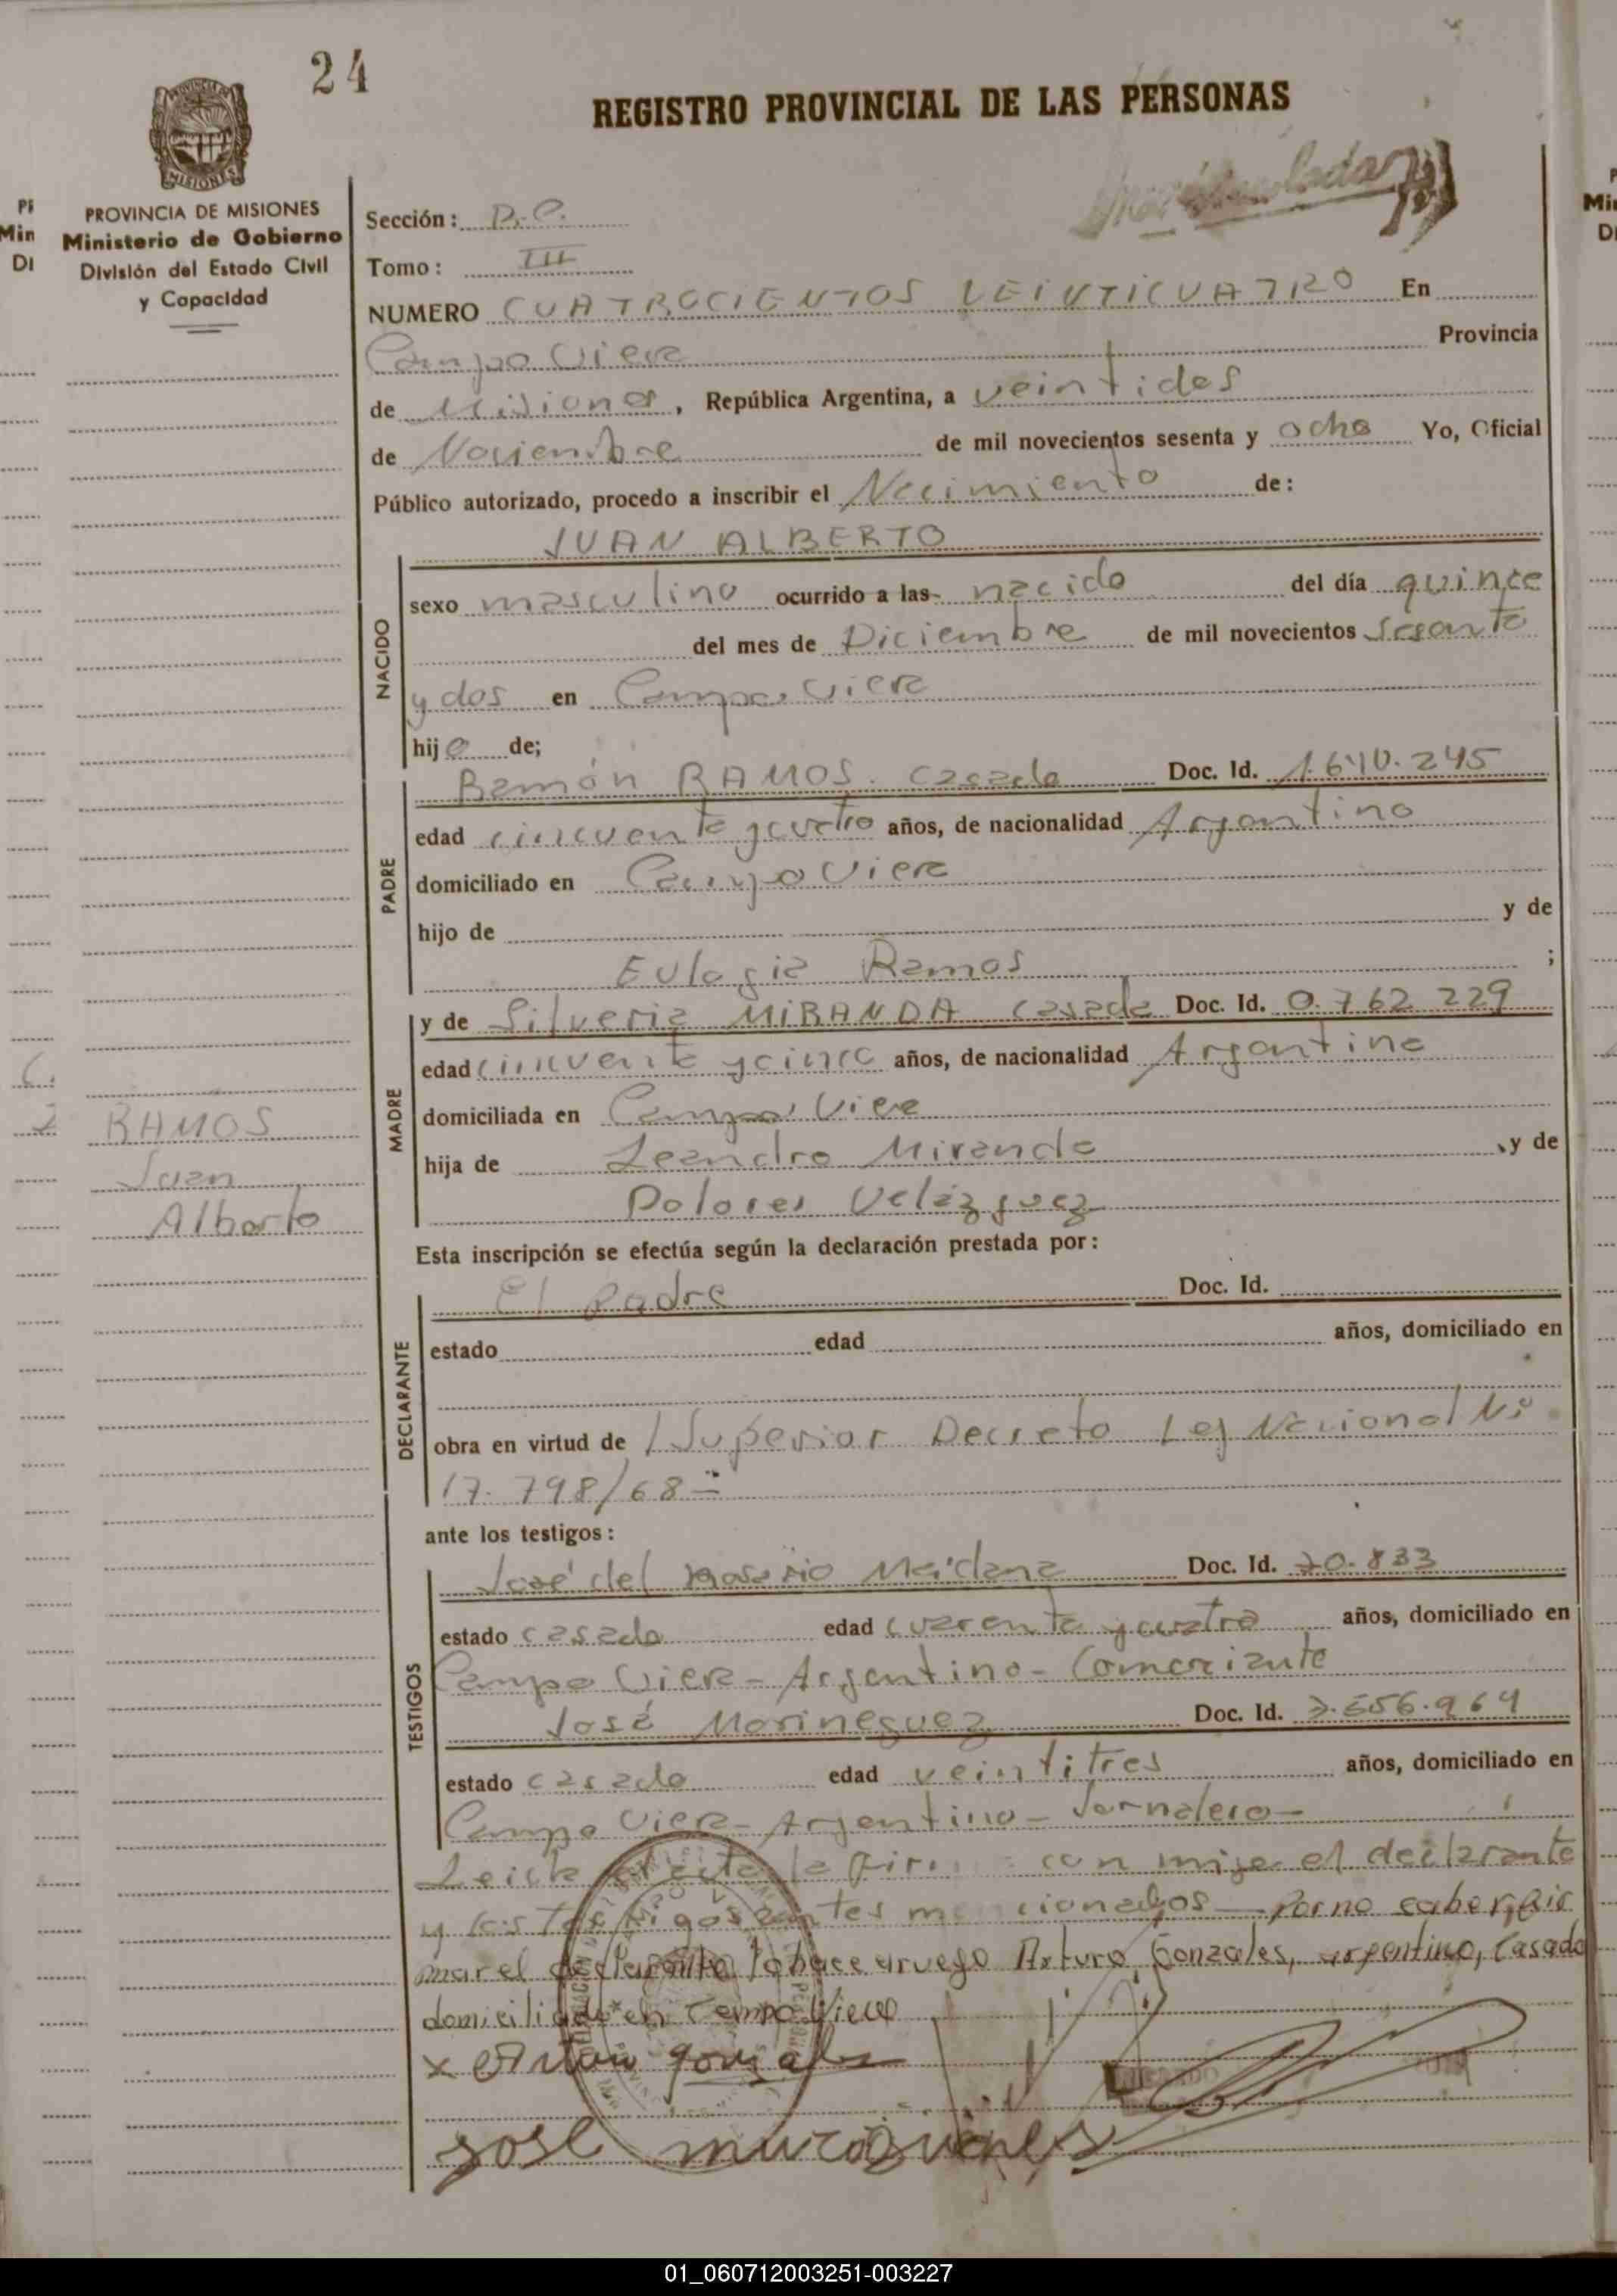 24
REGISTRO PROVINCIAL DE LAS PERSONAS
PROVINCIA DE MISIONES
Ministerio de Gobierno
División del Estado Civil
y Capacidad
Sección: B.C.
Tomo: III
NUMERO CUATROCIENTOS VEINTICUATRO En
Campo Viera Provincia
de Misiones, República Argentina, a veintidos
de Noviembre de mil novecientos sesenta y ocho Yo, Oficial
Público autorizado, procedo a inscribir el Nacimiento de:
JUAN ALBERTO
NACIDO
sexo masculino ocurrido a las- nacido del día quince
del mes de Diciembre de mil novecientos sesenta
y dos en Campo Viera
hijo de;
PADRE
Ramón RAMOS. casado Doc. Id. 1.640.245
edad cincuenta y cuatro años, de nacionalidad Argentino
domiciliado en Campo Viera
hijo de y de
Eulogia Ramos ;
MADRE
y de Silveria MIRANDA casada Doc. Id. 0.762.229
edad cincuenta y cinco años, de nacionalidad Argentina
domiciliada en Campo Viera
hija de Leandro Miranda y de
Dolores Velázquez
RAMOS
Juan
Alberto
Esta inscripción se efectúa según la declaración prestada por:
DECLARANTE
El Padre Doc. Id.
estado edad años, domiciliado en
obra en virtud de /Superior Decreto Ley Nacional Nº
17.798/68-
ante los testigos:
TESTIGOS
José del Rosario Maidana Doc. Id. 70.833
estado casado edad cuarenta y cuatro años, domiciliado en
Campo Viera - Argentino - Comerciante
José Morineguez Doc. Id. 7.556.964
estado casado edad veintitres años, domiciliado en
Campo Viera - Argentino - Jornalero -
Leida el acta la firma con migo el declarante
y los testigos antes mencionados - Por no saber fir
mar el declarante lo hace a ruego Arturo Gonzales, argentino, casado
domiciliado en Campo Viera
x
jose
01_060712003251-003227